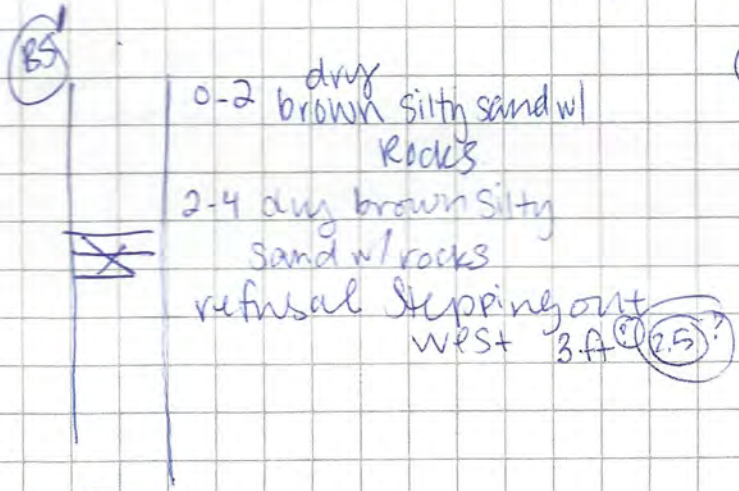 B5'
dry
0-2 brown silty sand w/
Rocks
2-4 dry brown silty
sand w/ rocks
refusal Stepping out
west 3ft ? 2.5 ?